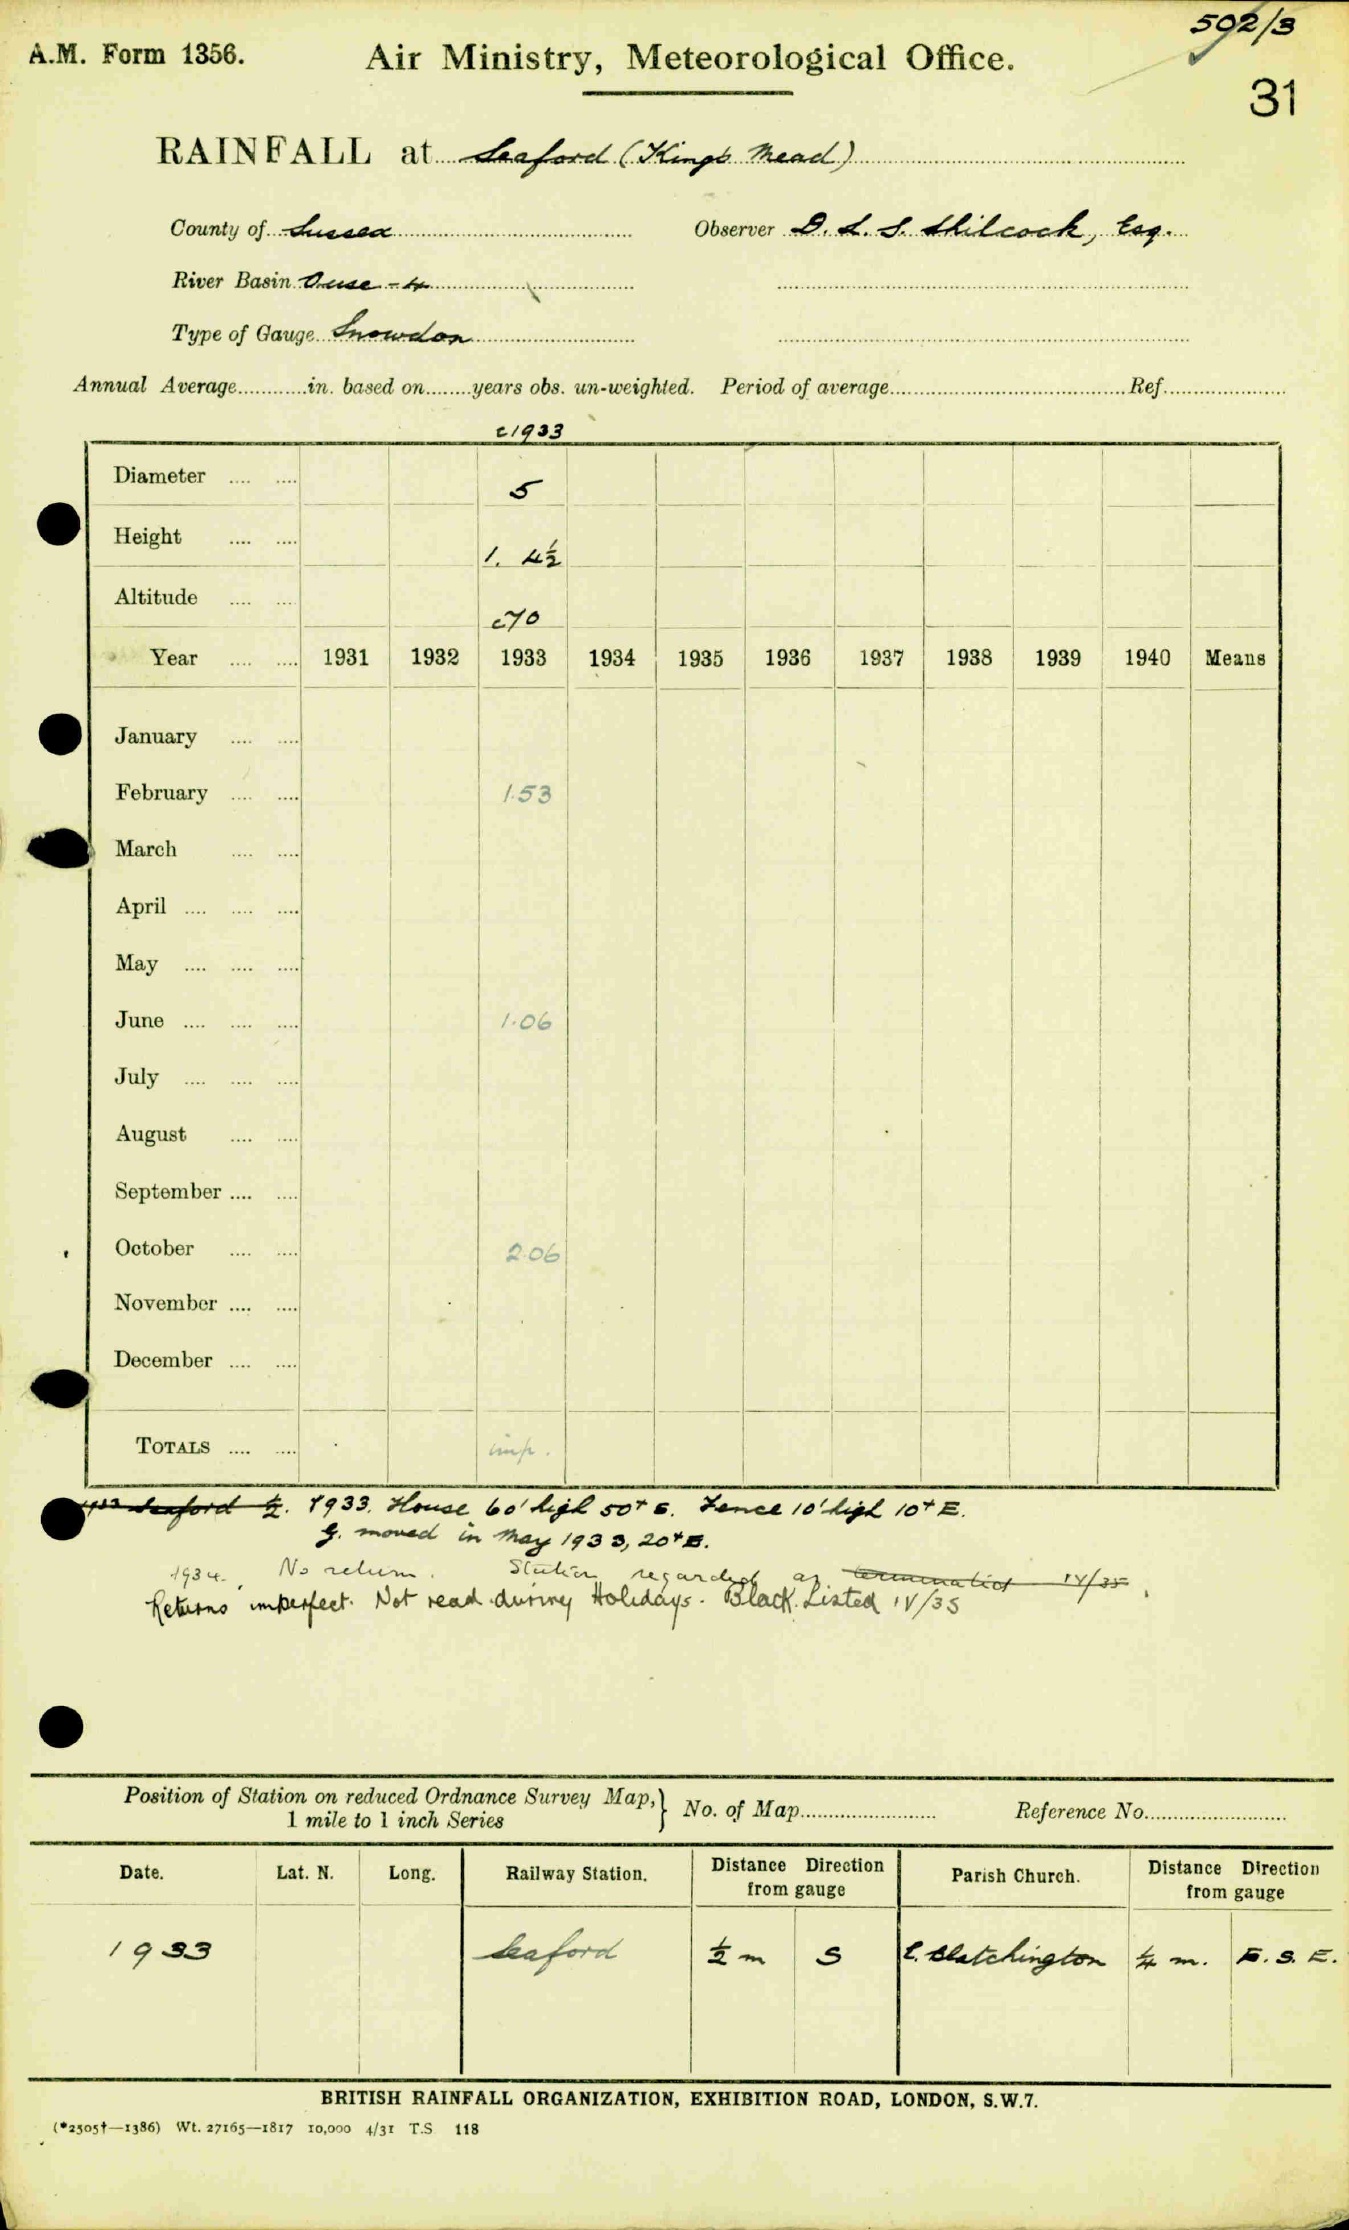 502/3
A.M. Form 1356. Air Ministry, Meteorological Office.
31
RAINFALL at Seaford (King's Mead)
County of Sussex Observer D. L. S. Shilcock, Esq.
River Basin Ouse - 4
Type of Gauge Snowdon
Annual Average............in. based on........years obs. un-weighted. Period of average..........Ref..........
c1933
Diameter .... .... 5
Height .... .... 1. 4½
Altitude .... .... c70
Year .... .... 1931 1932 1933 1934 1935 1936 1937 1938 1939 1940 Means
January .... ....
February .... .... 1.53
March .... ....
April .... .... ....
May .... .... ....
June .... .... .... 1.06
July .... .... ....
August .... ....
September .... ....
October .... .... 2.06
November .... ....
December .... ....
TOTALS .... .... imp.
1933 Seaford ½. 1933. House 60' high 50+ S. Fence 10' high 10+ E.
G. moved in May 1933, 20+ E.
1934. No return. Station regarded as terminated IV/35.
Returns imperfect. Not read during Holidays. Black Listed IV/35
Position of Station on reduced Ordnance Survey Map, } No. of Map.......... Reference No..........
1 mile to 1 inch Series
Date. Lat. N. Long. Railway Station. Distance Direction from gauge Parish Church. Distance Direction from gauge
1933 Seaford ½ m S E. Blatchington ¼ m. E. S. E.
BRITISH RAINFALL ORGANIZATION, EXHIBITION ROAD, LONDON, S.W.7.
(*2505†—1386) Wt. 27165—1817 10,000 4/31 T.S 118